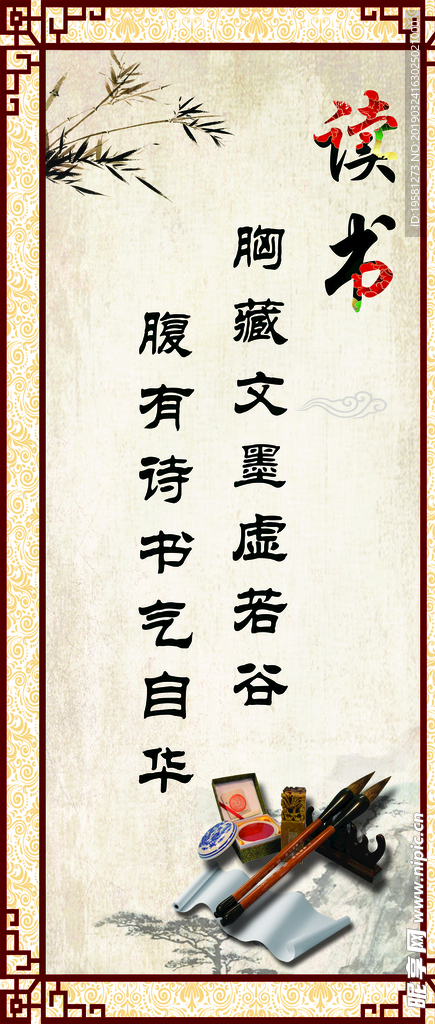 读书
胸藏文墨虚若谷
腹有诗书气自华
ID:19581273 NO:20190324163025027000
昵享网 www.nipic.cn